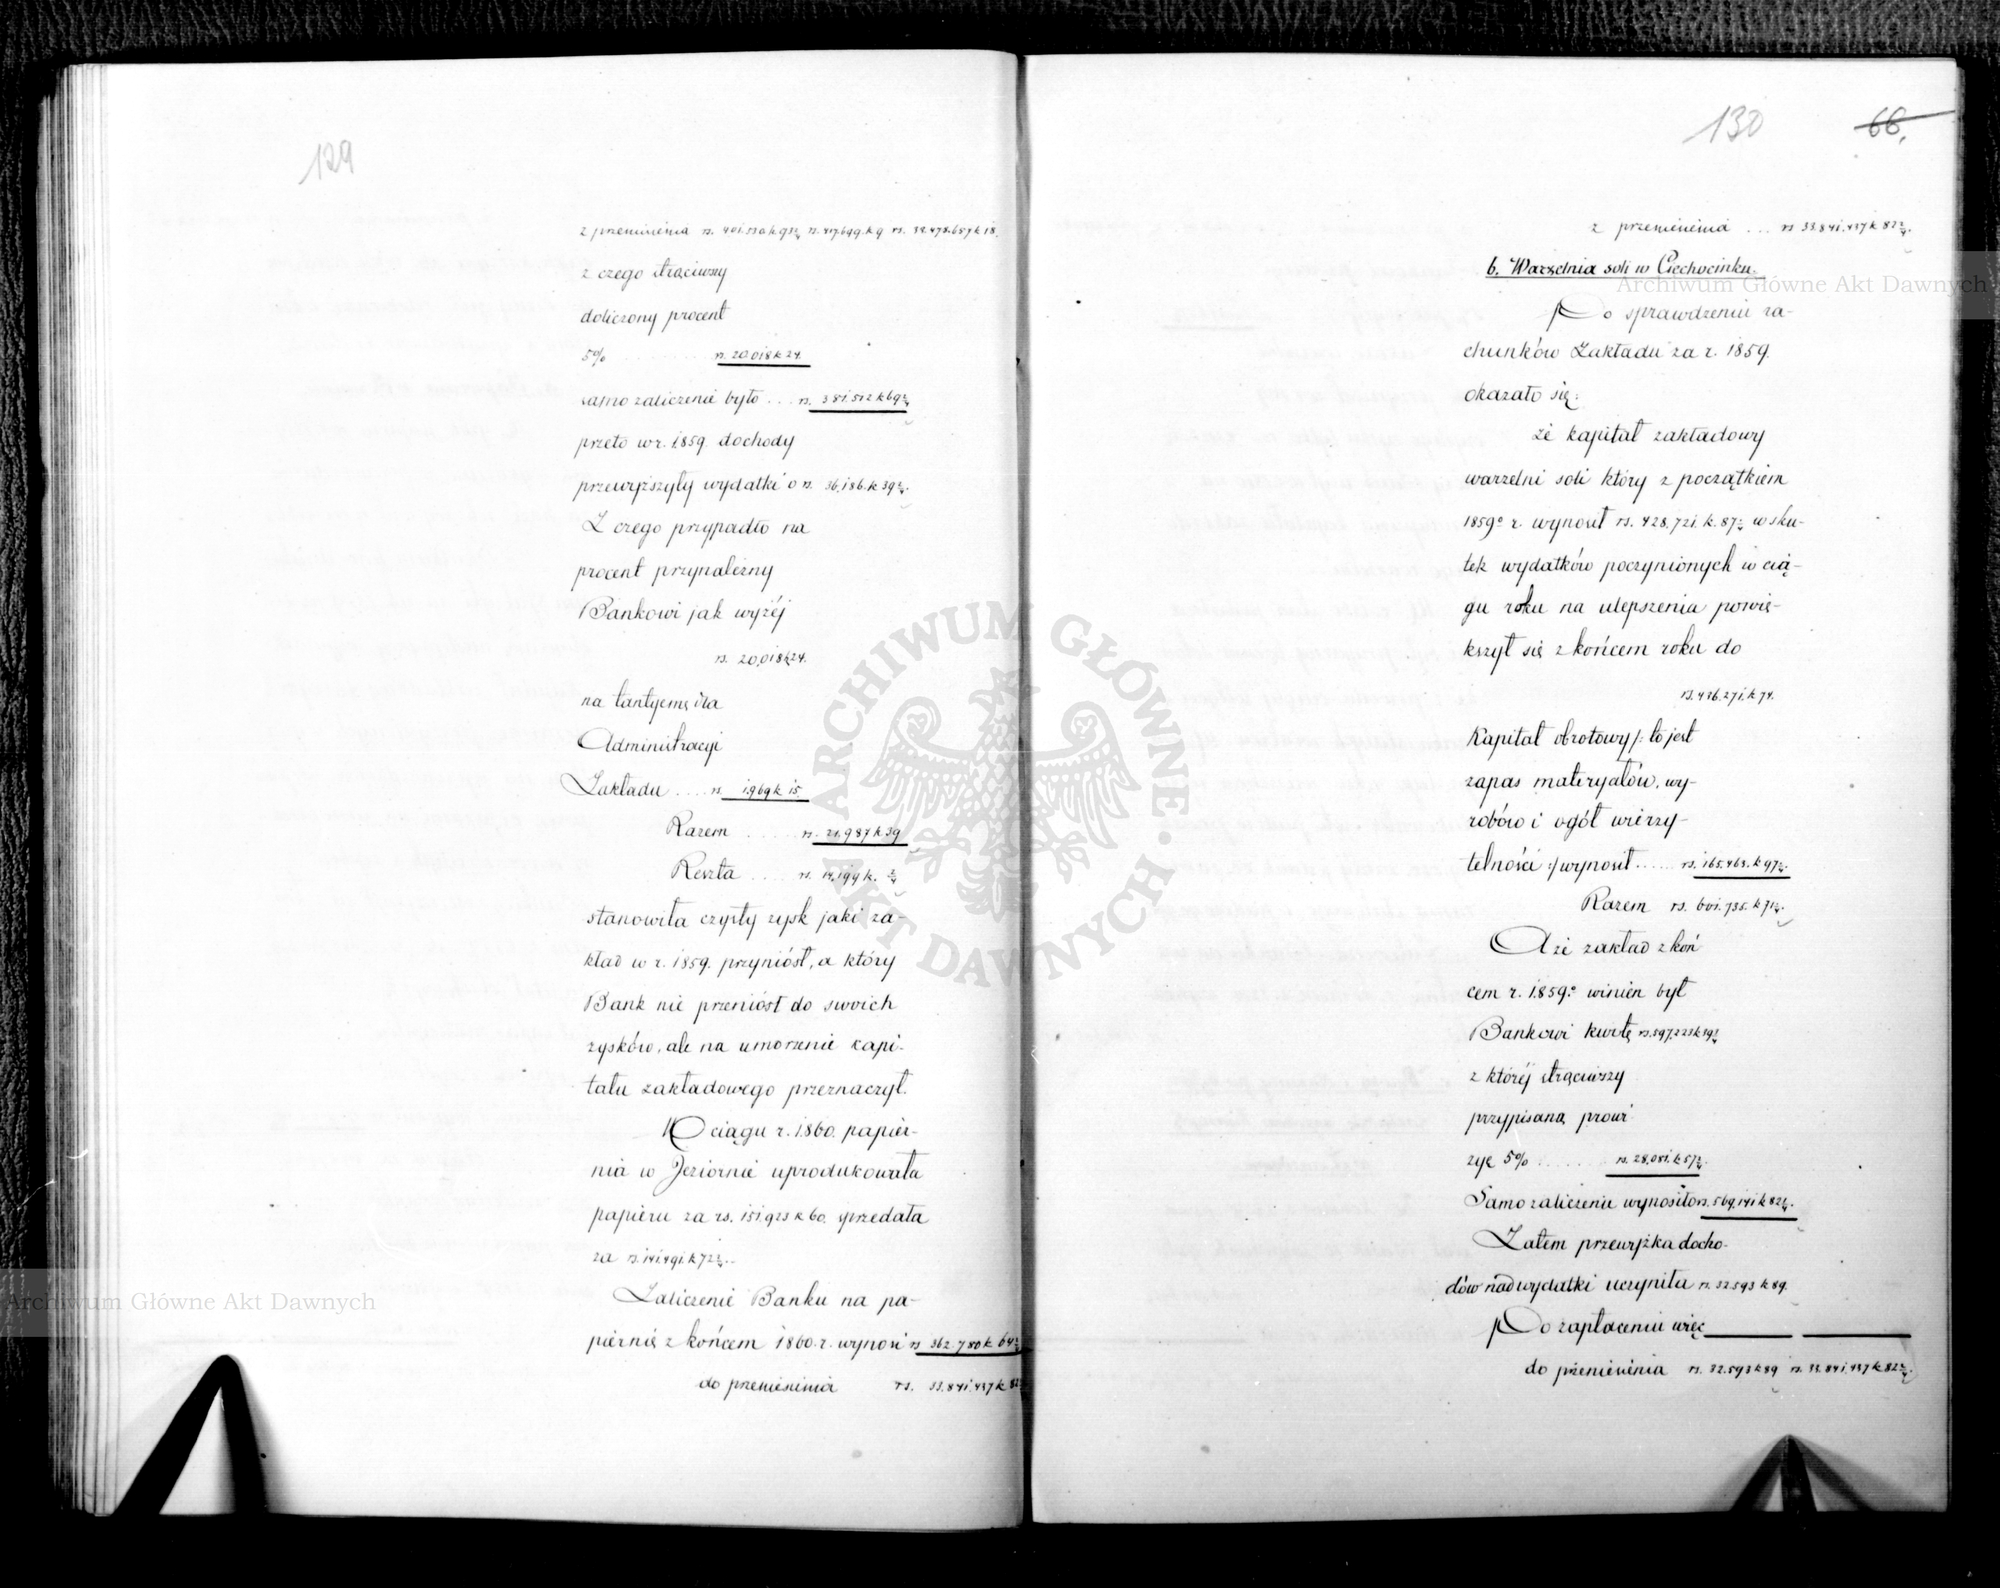 129
z przeniesienia rs. 401.530 k. 93 1/2 rs. 417.699. k 9 rs. 33.478.657 k 18.
z czego strąciwszy
doliczony procent
5% ........ rs. 20.018 k 24.
samo zaliczenie było ... rs. 381.512 k 69 1/2
przeto w r. 1859. dochody
przewyższyły wydatki o rs. 36,186. k 39 1/2.
Z czego przypadło na
procent przynależny
Bankowi jak wyżéj
rs. 20,018 k 24.
na tantyemę dla
Administracyi
Zakładu .... rs. 1.969 k 15.
Razem ..... rs. 21.987 k 39
Reszta .... rs. 14,199 k. 1/2
stanowiła czysty zysk jaki za-
kład w r. 1859. przyniósł, a który
Bank nie przeniósł do swoich
zysków, ale na umorzenie kapi-
tału zakładowego przeznaczył.
W ciągu r. 1860. papier-
nia w Jeziornie uprodukowała
papieru za rs. 151.923 k 60. sprzedała
za rs. 141.491. k 72 1/2 ..
Zaliczenie Banku na pa-
piernię z końcem 1860. r. wynosi rs 362.780 k 64 1/2
do przeniesienia rs. 33.841.437 k 82
130 66.
z przeniesienia ... rs 33.841.437 k 82 1/2.
b. Warzelnia soli w Ciechocinku.
Po sprawdzeniu ra-
chunków Zakładu za r. 1859.
okazało się:
że kapitał zakładowy
warzelni soli który z początkiem
1859o r. wynosił rs. 428,721. k. 87 1/2 w sku-
tek wydatków poczynionych w cią-
gu roku na ulepszenia powię-
kszył się z końcem roku do
rs. 436.271. k 74.
Kapitał obrotowy /: to jest
zapas materyałów, wy-
robów i ogół wierzy-
telności :/ wynosił ..... rs. 165.463. k 97 1/2.
Razem rs. 601.735. k 71 1/2.
A że zakład z koń
cem r. 1859.o winien był
Bankowi kwotę rs. 597.223 k 39 1/2
z któréj strąciwszy
przypisaną prowi
zyę 5% ....... rs. 28,081. k 57 1/2.
Samo zaliczenie wynosiło rs. 569,141 k 82 1/2.
Zatem przewyżka docho-
dów nad wydatki uczyniła rs. 32.593 k 89.
Po zapłaceniu więc
do przeniesienia rs. 32.593 k 89 rs. 33.841.437 k 82 1/2.
ARCHIWUM GŁÓWNE AKT DAWNYCH
Archiwum Główne Akt Dawnych
Archiwum Główne Akt Dawnych